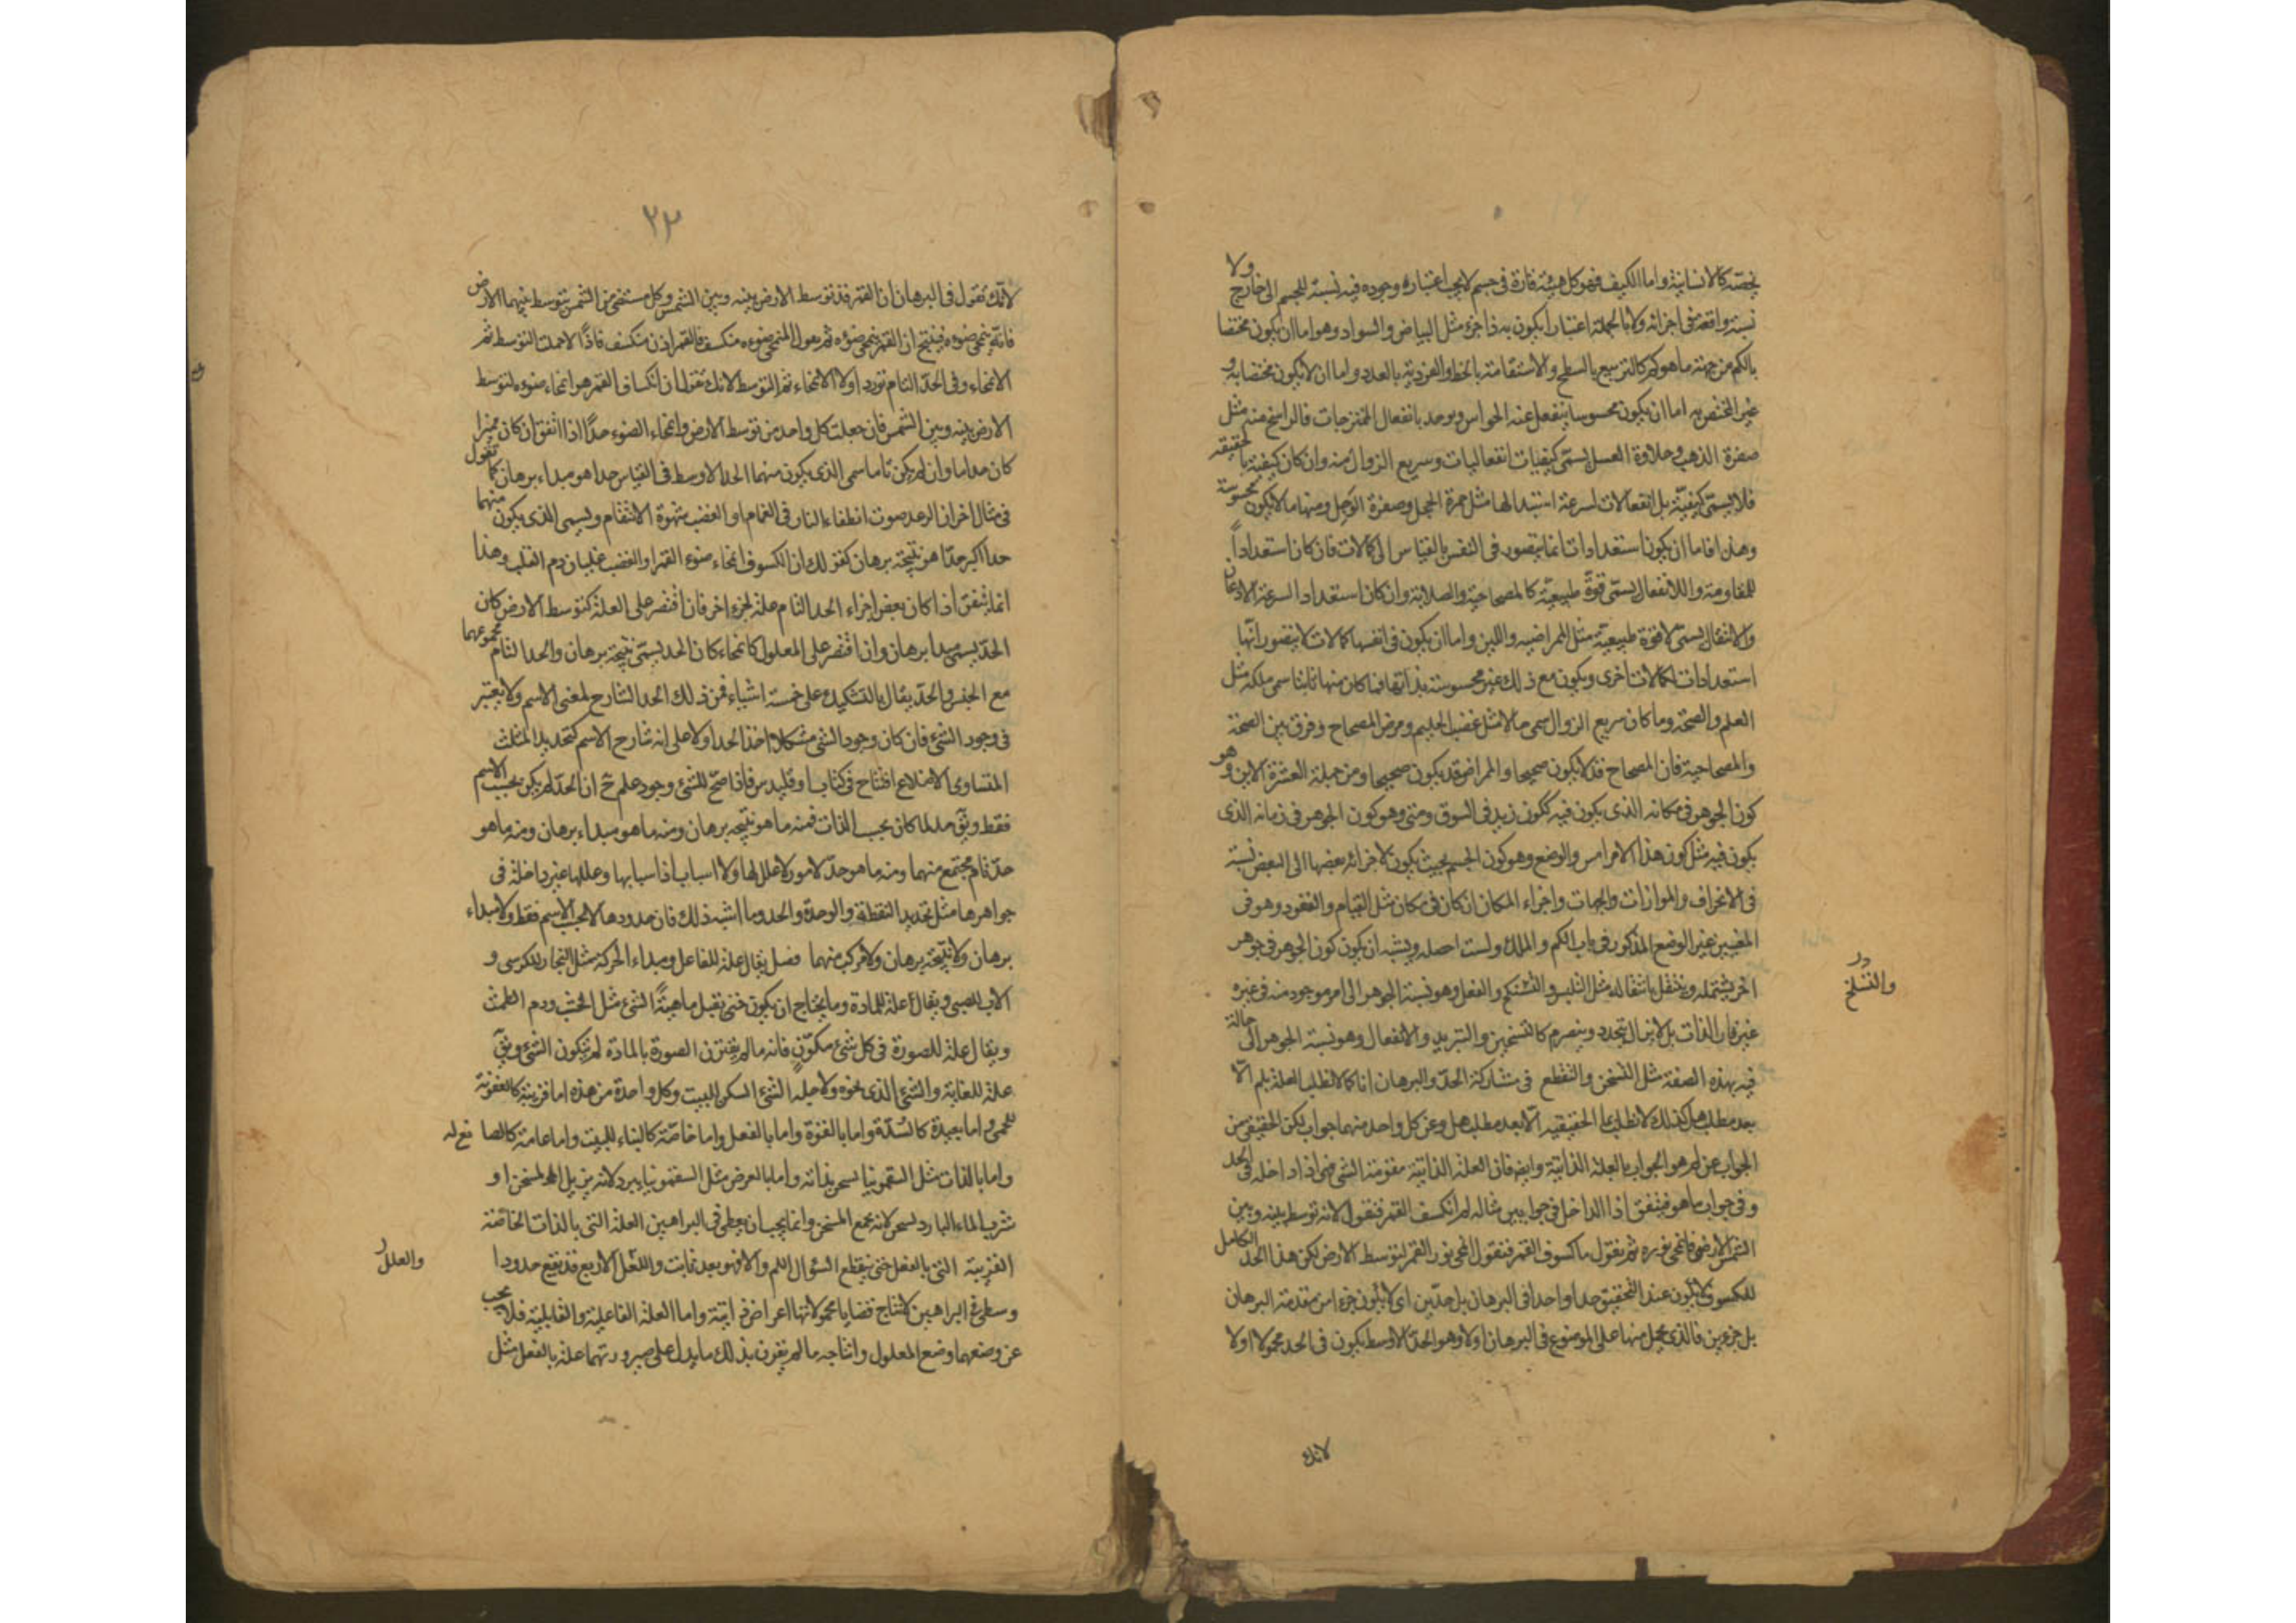 يخصّه كالانسانية واما الكيف فهو كل هيئة قارة فى جسم لا يجب اعتبار وجوده فيه نسبة للجسم الى خارج ولا
نسبة واقعة فى اجزائه ولا بالجملة اعتبارا يكون به ذا جزء مثل البياض والسواد وهو اما ان يكون مختصا
بالكم من جهة ما هو كم كالتربيع بالسطح والاستقامة بالخط والفردية بالعدد واما ان لا يكون مختصا به و
غير المختص به اما ان يكون محسوسا ينفعل عنه الحواس ويوجد بانفعال الممتزجات فالراسخ منه مثل
صفرة الذهب وحلاوة العسل يسمّى كيفيات انفعاليات وسريع الزوال منه وان كان كيفية بالحقيقة
فلا يسمّى كيفيّة بل انفعالات لسرعة استبدالها مثل حمرة الخجل وصفرة الوجل ومنها ما لا يكون محسوسة
وهذا فاما ان يكون استعدادات انما يتصور فى النفس بالقياس الى كمالات فان كان استعداداً
للمقاومة واللاانفعال يسمّى قوةً طبيعيّة كالمصحاحية والصلابة وان كان استعدادا لسرعة الاذعان
والانفعال يسمّى لا قوة طبيعية مثل الممراضية واللين واما ان يكون فى انفسها كمالات لا يتصور انّها
استعدادات لكمالات اخرى ويكون مع ذلك غير محسوسة بذاتها فما كان منها ثابتا سمى ملكة مثل
العلم والصحة وما كان سريع الزوال سمى حالا مثل غضب الحليم ومرض المصحاح وفرق بين الصحة
والمصحاحية فان المصحاح قد لا يكون صحيحا والممراض قد يكون صحيحا ومن جملة العشرة الاين وهو
كون الجوهر فى مكانه الذى يكون فيه ككون زيد فى السوق ومتى وهو كون الجوهر فى زمانه الذى
يكون فيه مثل كون هذا الامر امس والوضع وهو كون الجسم بحيث يكون لاجزائه بعضها الى البعض نسبة
فى الانحراف والموازات والجهات واجزاء المكان ان كان فى مكان مثل القيام والقعود وهو فى
المعنيين غير الوضع المذكور فى باب الكم والملك ولست احصله ويشبه ان يكون كون الجوهر فى جوهر
اخر يشتمله وينتقل بانتقاله مثل التلبس والتسلح والفعل وهو نسبة الجوهر الى امر موجود منه فى غيره
والتسلح
غير قار الذات بل لا يزال يتجدد وينصرم كالتسخين والتبريد والانفعال وهو نسبة الجوهر الى حالة
فيه بهذه الصفة مثل التسخن والتقطع فى مشاركة الحدّ والبرهان انا كما لا نطلب العلة بلم الّا
بعد مطلب هل كذلك لا نطلب بما الحقيقيه الّا بعد مطلب هل وعن كل واحد منهما جواب لكن الحقيقى من
الجواب عن لم هو الجواب بالعلة الذاتية وايضا فان العلة الذاتية مقومة الشى فهى اذا داخله فى الحد
وفى جواب ما هو فيتفق اذا الداخل فى جوابين مثاله لم انكسف القمر فنقول لانه توسط بينه وبين
الشمس الارض فانمحى نوره ثم نقول ما كسوف القمر فنقول انمحى نور القمر لتوسط الارض لكن هذا الحد الكامل
للكسوف لا يكون عند التحقيق حدا واحدا فى البرهان بل حدّين اى لا يكون جزءا من مقدمة البرهان
بل جزءين فالذى يحمل منها على الموضوع فى البرهان اولا وهو الحدّ الاوسط يكون فى الحد محمولا اولا
لانك
٢٣
لانّك تقول فى البرهان ان القمر قد توسط الارض بينه وبين الشمس وكل مستضئ من الشمس يتوسط بينهما الارض
فانّه ينمحى ضوءه فينتج ان القمر ينمحى ضوؤه ثم نقول المنمحى ضوءه منكسف فالقمر اذن منكسف فاذًا الاحملت التوسط ثم
الانمحاء وفى الحدّ التام تورد اولا الانمحاء ثم التوسط لانك تقول ان انكساف القمر هو انمحاء ضوءه لتوسط
الارض بينه وبين الشمس فان جعلت كل واحد من توسط الارض وانمحاء الضوء حدًّا اذا اتفق ان كان مميزا
كان حدا ما وان لم يكن تاما سمى الذى يكون منهما الحد الاوسط فى القياس حدا هو مبداء برهان كما تقول
فى مثال اخر ان الرعد صوت انطفاء النار فى الغمام او الغضب شهوة الانتقام ويسمى الذى يكون منهما
حدا اكبر حدّا هو نتيجة برهان كقولك ان الكسوف انمحاء ضوء القمر او الغضب غليان دم القلب وهذا
انما يتفق اذا كان بعض اجزاء الحد التام علة لجزء اخر فان اقتصر على العلة كتوسط الارض كان
الحدّ يسمى مبدا برهان وان اقتصر على المعلول كانمحاء كان الحد يسمّى نتيجة برهان والحد التام مجموعهما
مع الجنس والحدّ يقال بالتشكيك على خمسة اشياء فمن ذلك الحد الشارح لمعنى الاسم ولا يعتبر
فى وجود الشئ فان كان وجود الشئ مشكلا اخذ الحد اولا على انه شارح الاسم كتحديد المثلث
المتساوى الاضلاع افتتاح فى كتاب اوقليدس فاذا صحّ للشئ وجود علم ح ان الحدّ لم يكن بحسب الاسم
فقط ويق حد لما كان بحسب الذات فمنه ما هو نتيجة برهان ومنه ما هو مبداء برهان ومنه ما هو
حدّ تام مجتمع منهما ومنه ما هو حدّ لامور لا علل لها ولا اسباب اذ اسبابها وعللها غير داخلة فى
جواهرها مثل تحديد النقطة والوحدة والحد وما اشبه ذلك فان حدودها لا بحسب الاسم فقط ولا مبداء
برهان ولا نتيجة برهان ولا مركب منهما فصل يقال علة للفاعل ومبداء الحركة مثل النجار للكرسى و
الاب للصبى ويقال علة للمادة وما يحتاج ان يكون حتى تقبل ماهيةً الشئ مثل الخشب ودم الطمث
ويقال علة للصورة فى كل شئ مكوّنٍ فانه ما لم يقترن الصورة بالمادة لم يتكون الشئ ويق
علة للغاية والشئ الذى نحوه ولاجله الشئ السكن للبيت وكل واحدة من هذه اما قريبة كالعفونة
للحمى واما بعيدة كالسّدّة واما بالقوّة واما بالفعل واما خاصّة كالبناء للبيت واما عامة كالصانع له
واما بالذات مثل السقمونيا يسخن بذاته واما بالعرض مثل السقمونيا يبرد لانه يزيل المسخن او
شرب الماء البارد يسخن لانه يجمع المسخن وانما يجب ان يعطى فى البراهين العلة التى بالذات الخاصّة
القريبة التى بالفعل حتى ينقطع السؤال اللم والا فهو بعد ثابت والعلل الاربع قد تقع حدودا
والعلل
وسطى فى البراهين لانتاج قضايا محمولاتها اعراض ذاتيّة واما العلة الفاعلية والقابلية فلا يجب
عن وضعهما وضع المعلول وانتاجه ما لم يقرن بذلك ما يدل على صيرورتهما علة بالفعل مثل